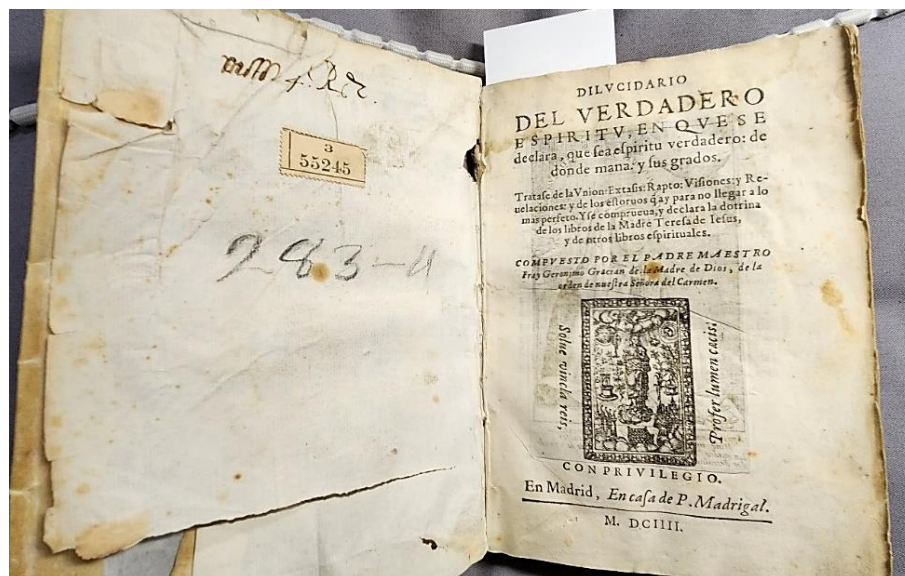 3
55245
283-4
DILVCIDARIO
DEL VERDADERO
ESPIRITV, EN QVE SE
declara, que sea espiritu verdadero: de
dõde mana: y sus grados.
Tratase de la Vnion: Extasis: Rapto: Visiones: y Re-
uelaciones: y de los estoruos q̃ ay para no llegar a lo
mas perfeto. Y se comprueua, y declara la dotrina
de los libros de la Madre Teresa de Iesus,
y de otros libros espirituales.
COMPVESTO POR EL PADRE MAESTRO
Fray Geronimo Gracian de la Madre de Dios, de la
orden de nuestra Señora del Carmen.
Solue vincla reis,
Profer lumen cæcis.
CON PRIVILEGIO.
En Madrid, En casa de P. Madrigal.
M. DCIIII.